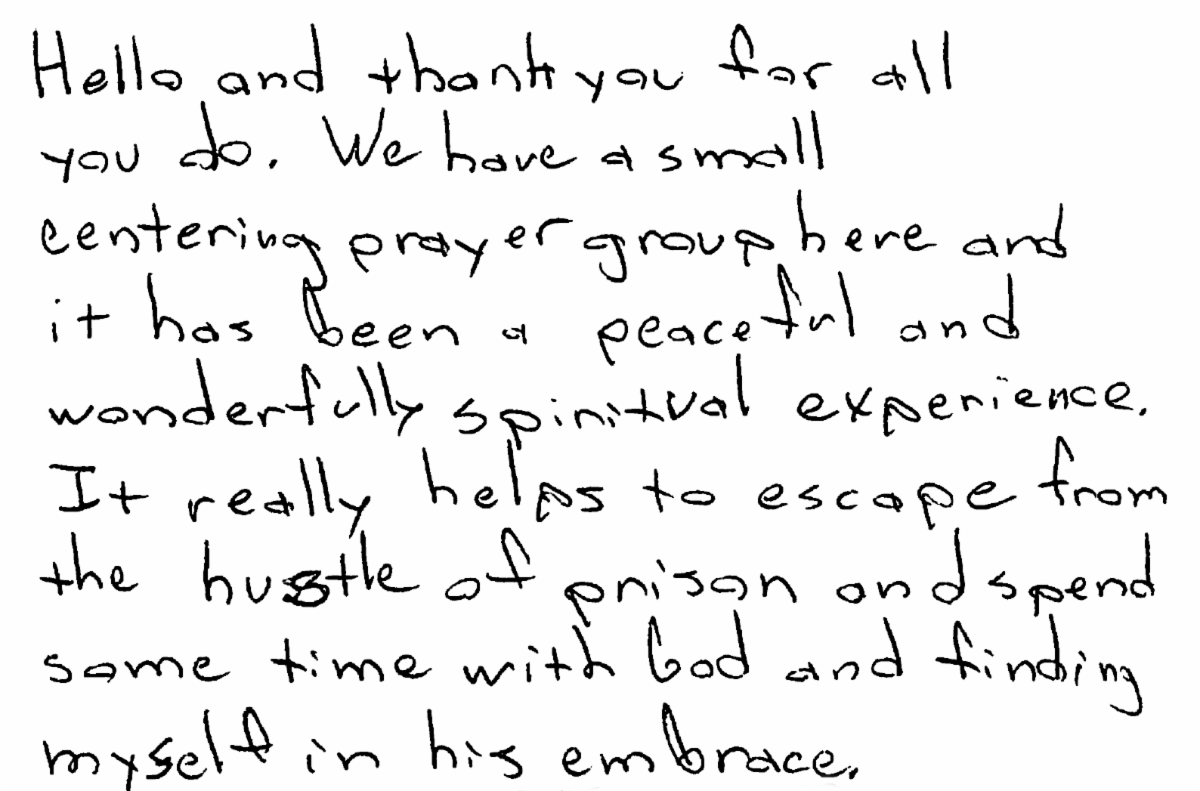 Hello and thank you for all
you do. We have a small
centering prayer group here and
it has been a peaceful and
wonderfully spiritual experience.
It really helps to escape from
the hustle of prison and spend
some time with God and finding
myself in his embrace.